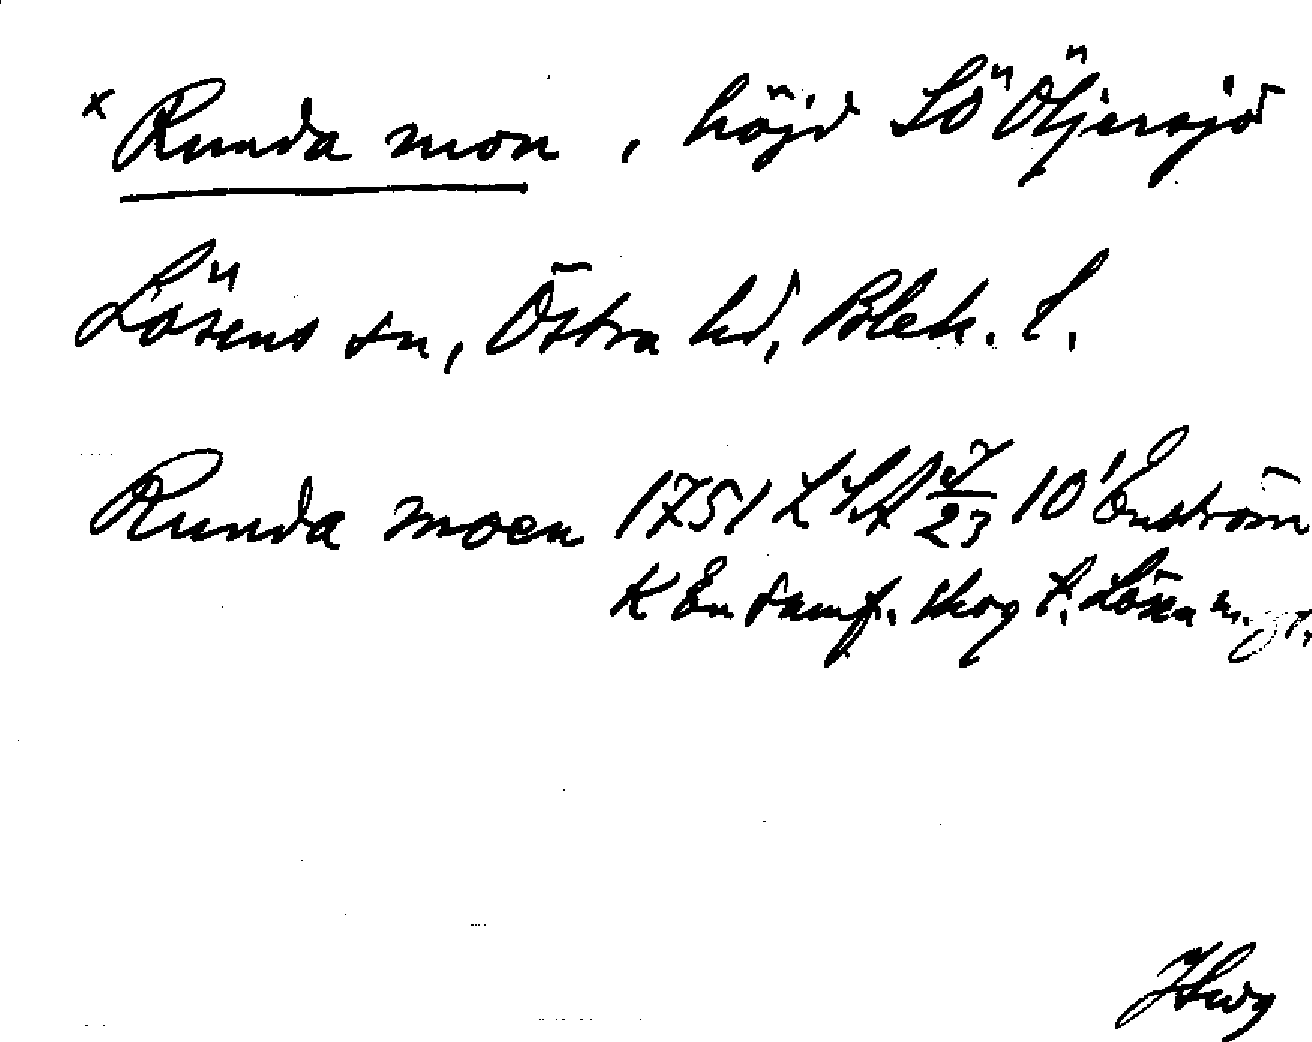 x Runda mon, höjd SÖ Öljersjö
Lösens sn, Östra hd, Blek. l.
Runda moen 1751 LSA J/23 10' Enström
K En samf. skog t. Lösen m. gr.